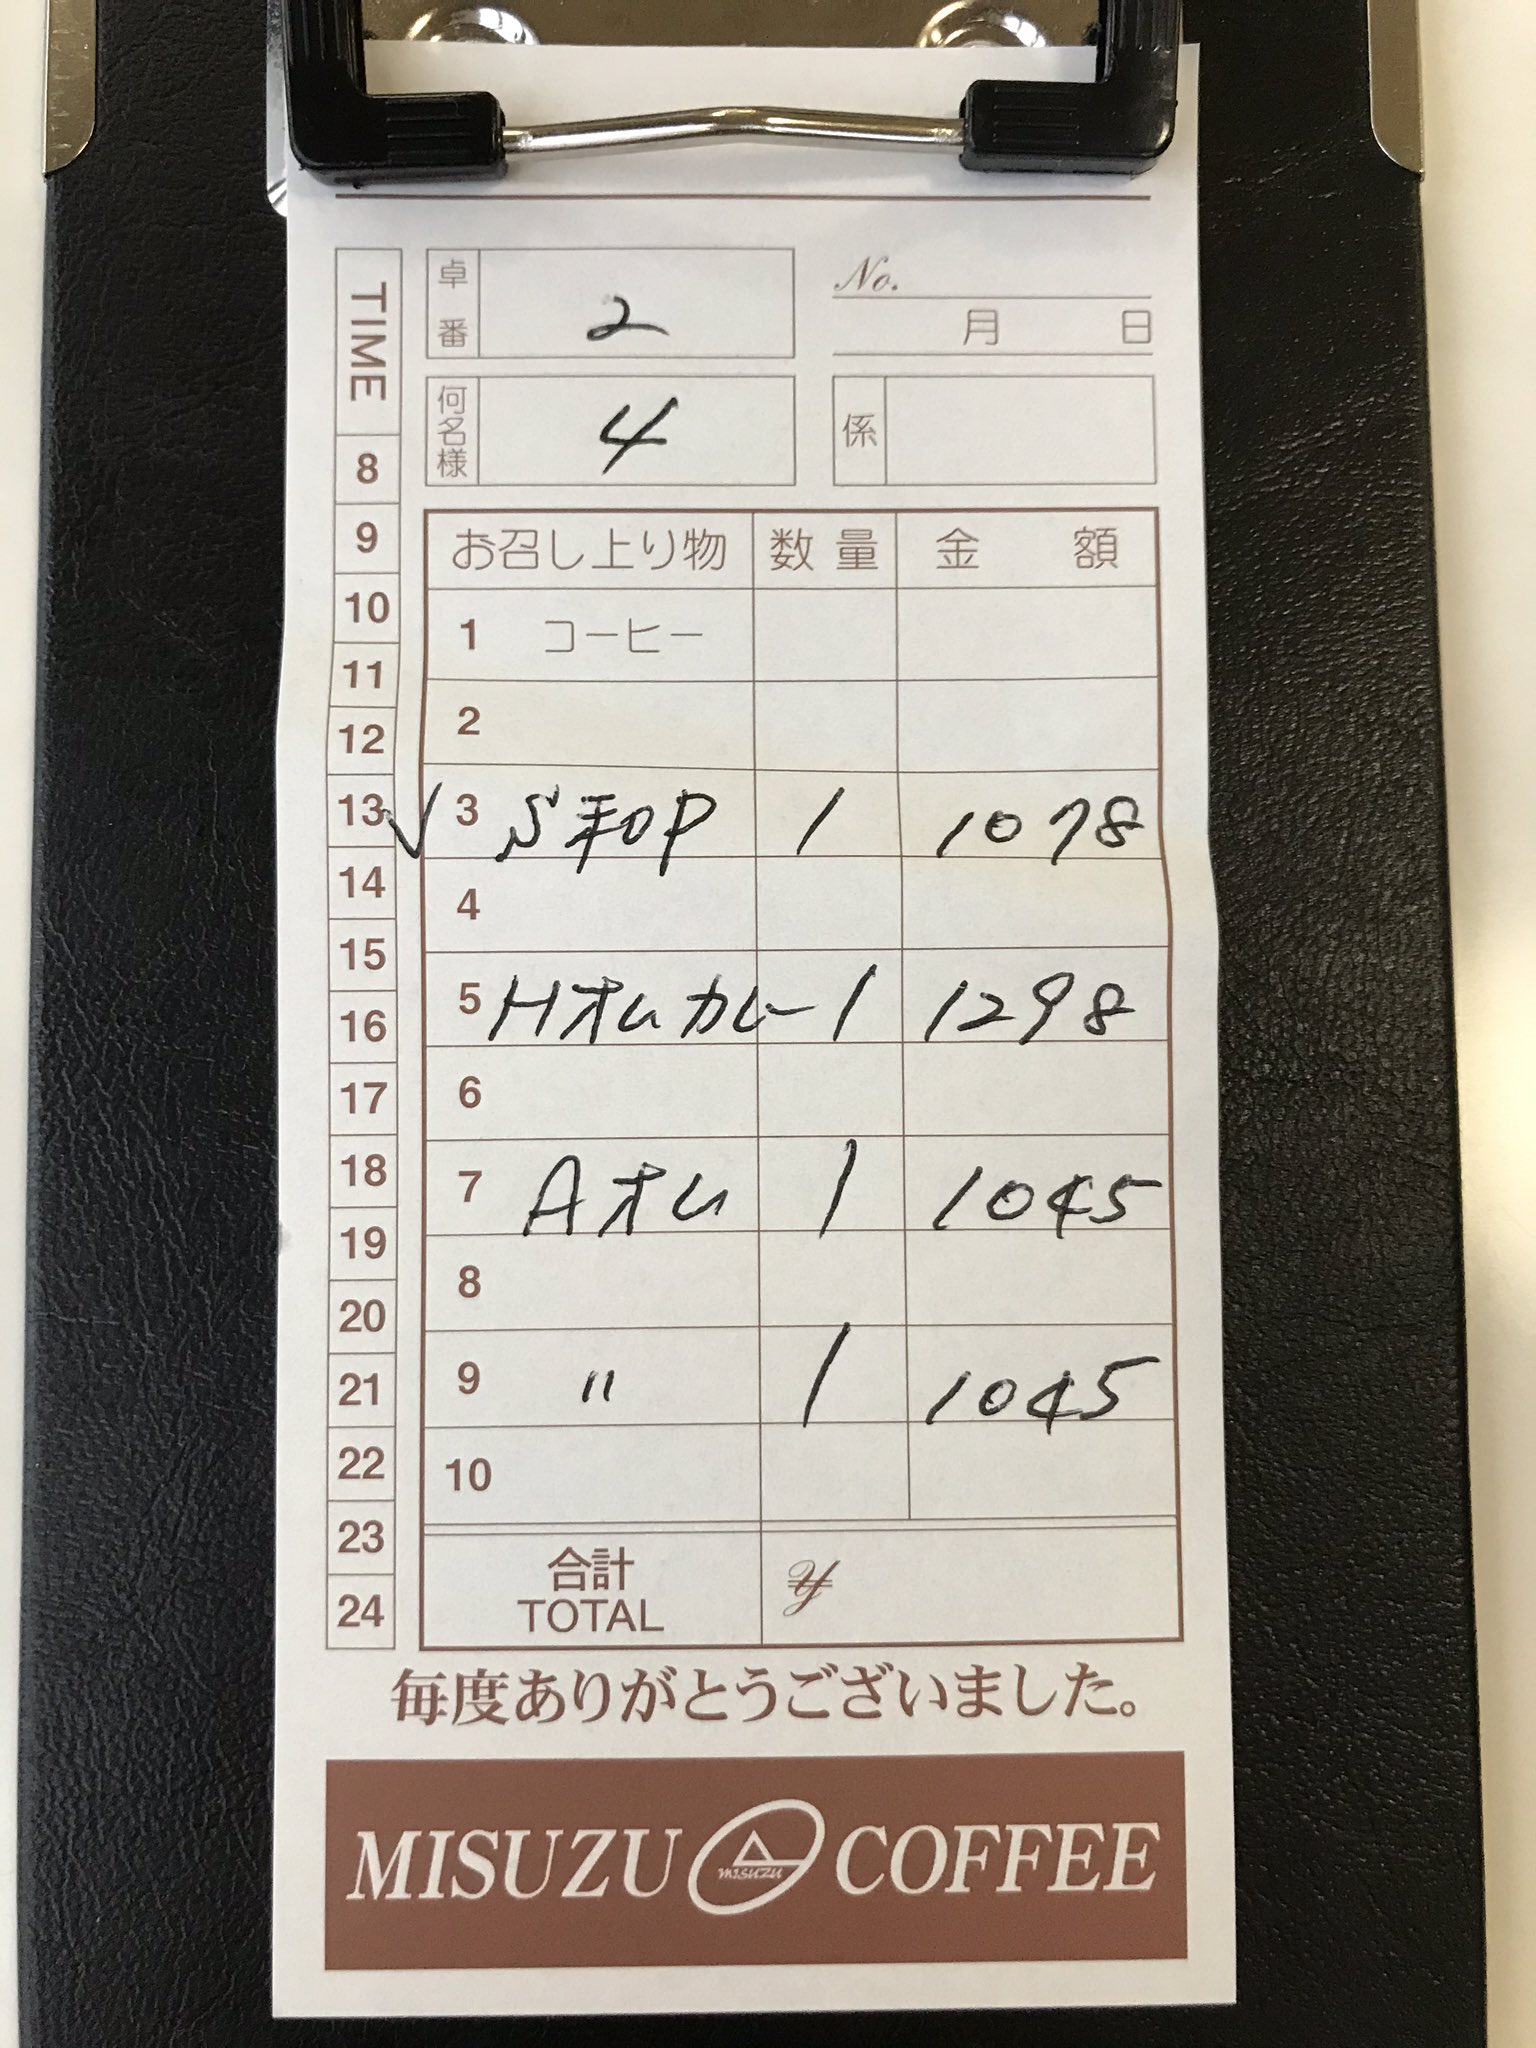 TIME
卓番 2
No.
月 日
何名様 4
係
お召し上り物 数量 金額
8
9
10
11
12
13
14
15
16
17
18
19
20
21
22
23
24
1 コーヒー
2
✓ 3 S和P 1 1078
4
5 Hオムカレー 1 1298
6
7 Aオム 1 1045
8
9 〃 1 1045
10
合計
TOTAL ¥
毎度ありがとうございました。
MISUZU misuzu COFFEE